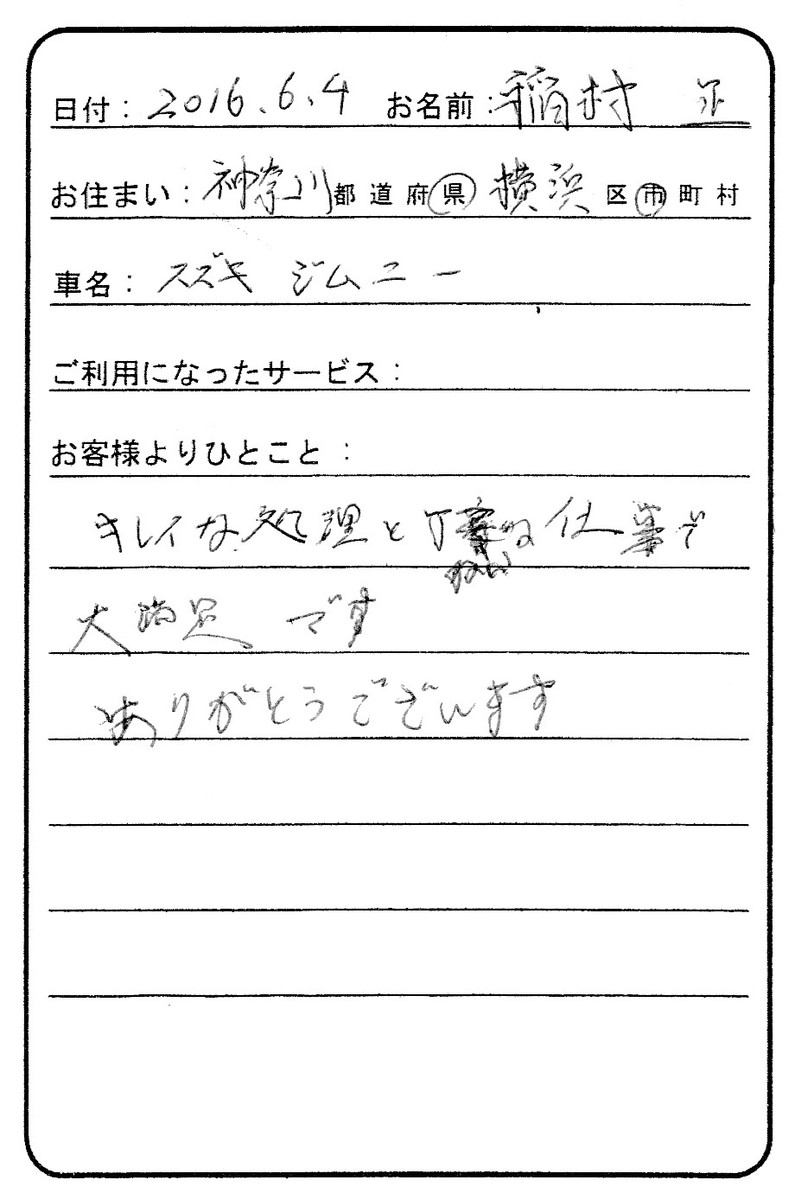 日付：2016.6.4 お名前：稲村
お住まい：神奈川都道府県 横浜区市町村
車名：スズキ ジムニー
ご利用になったサービス：
お客様よりひとこと：
キレイな処理と丁寧な仕事で
大満足です
ありがとうございます